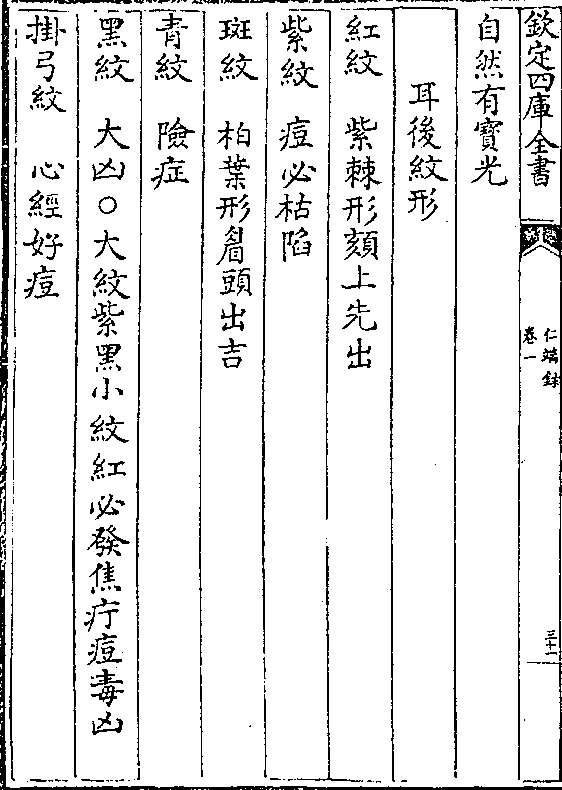 欽定四庫全書
仁端録
卷一
三十一
自然有寶光
耳後紋形
紅紋 紫棘形頦上先出
紫紋 痘必枯陷
斑紋 柏葉形眉頭出吉
青紋 險症
黑紋 大凶○大紋紫黑小紋紅必發焦疔痘毒凶
掛弓紋 心經好痘